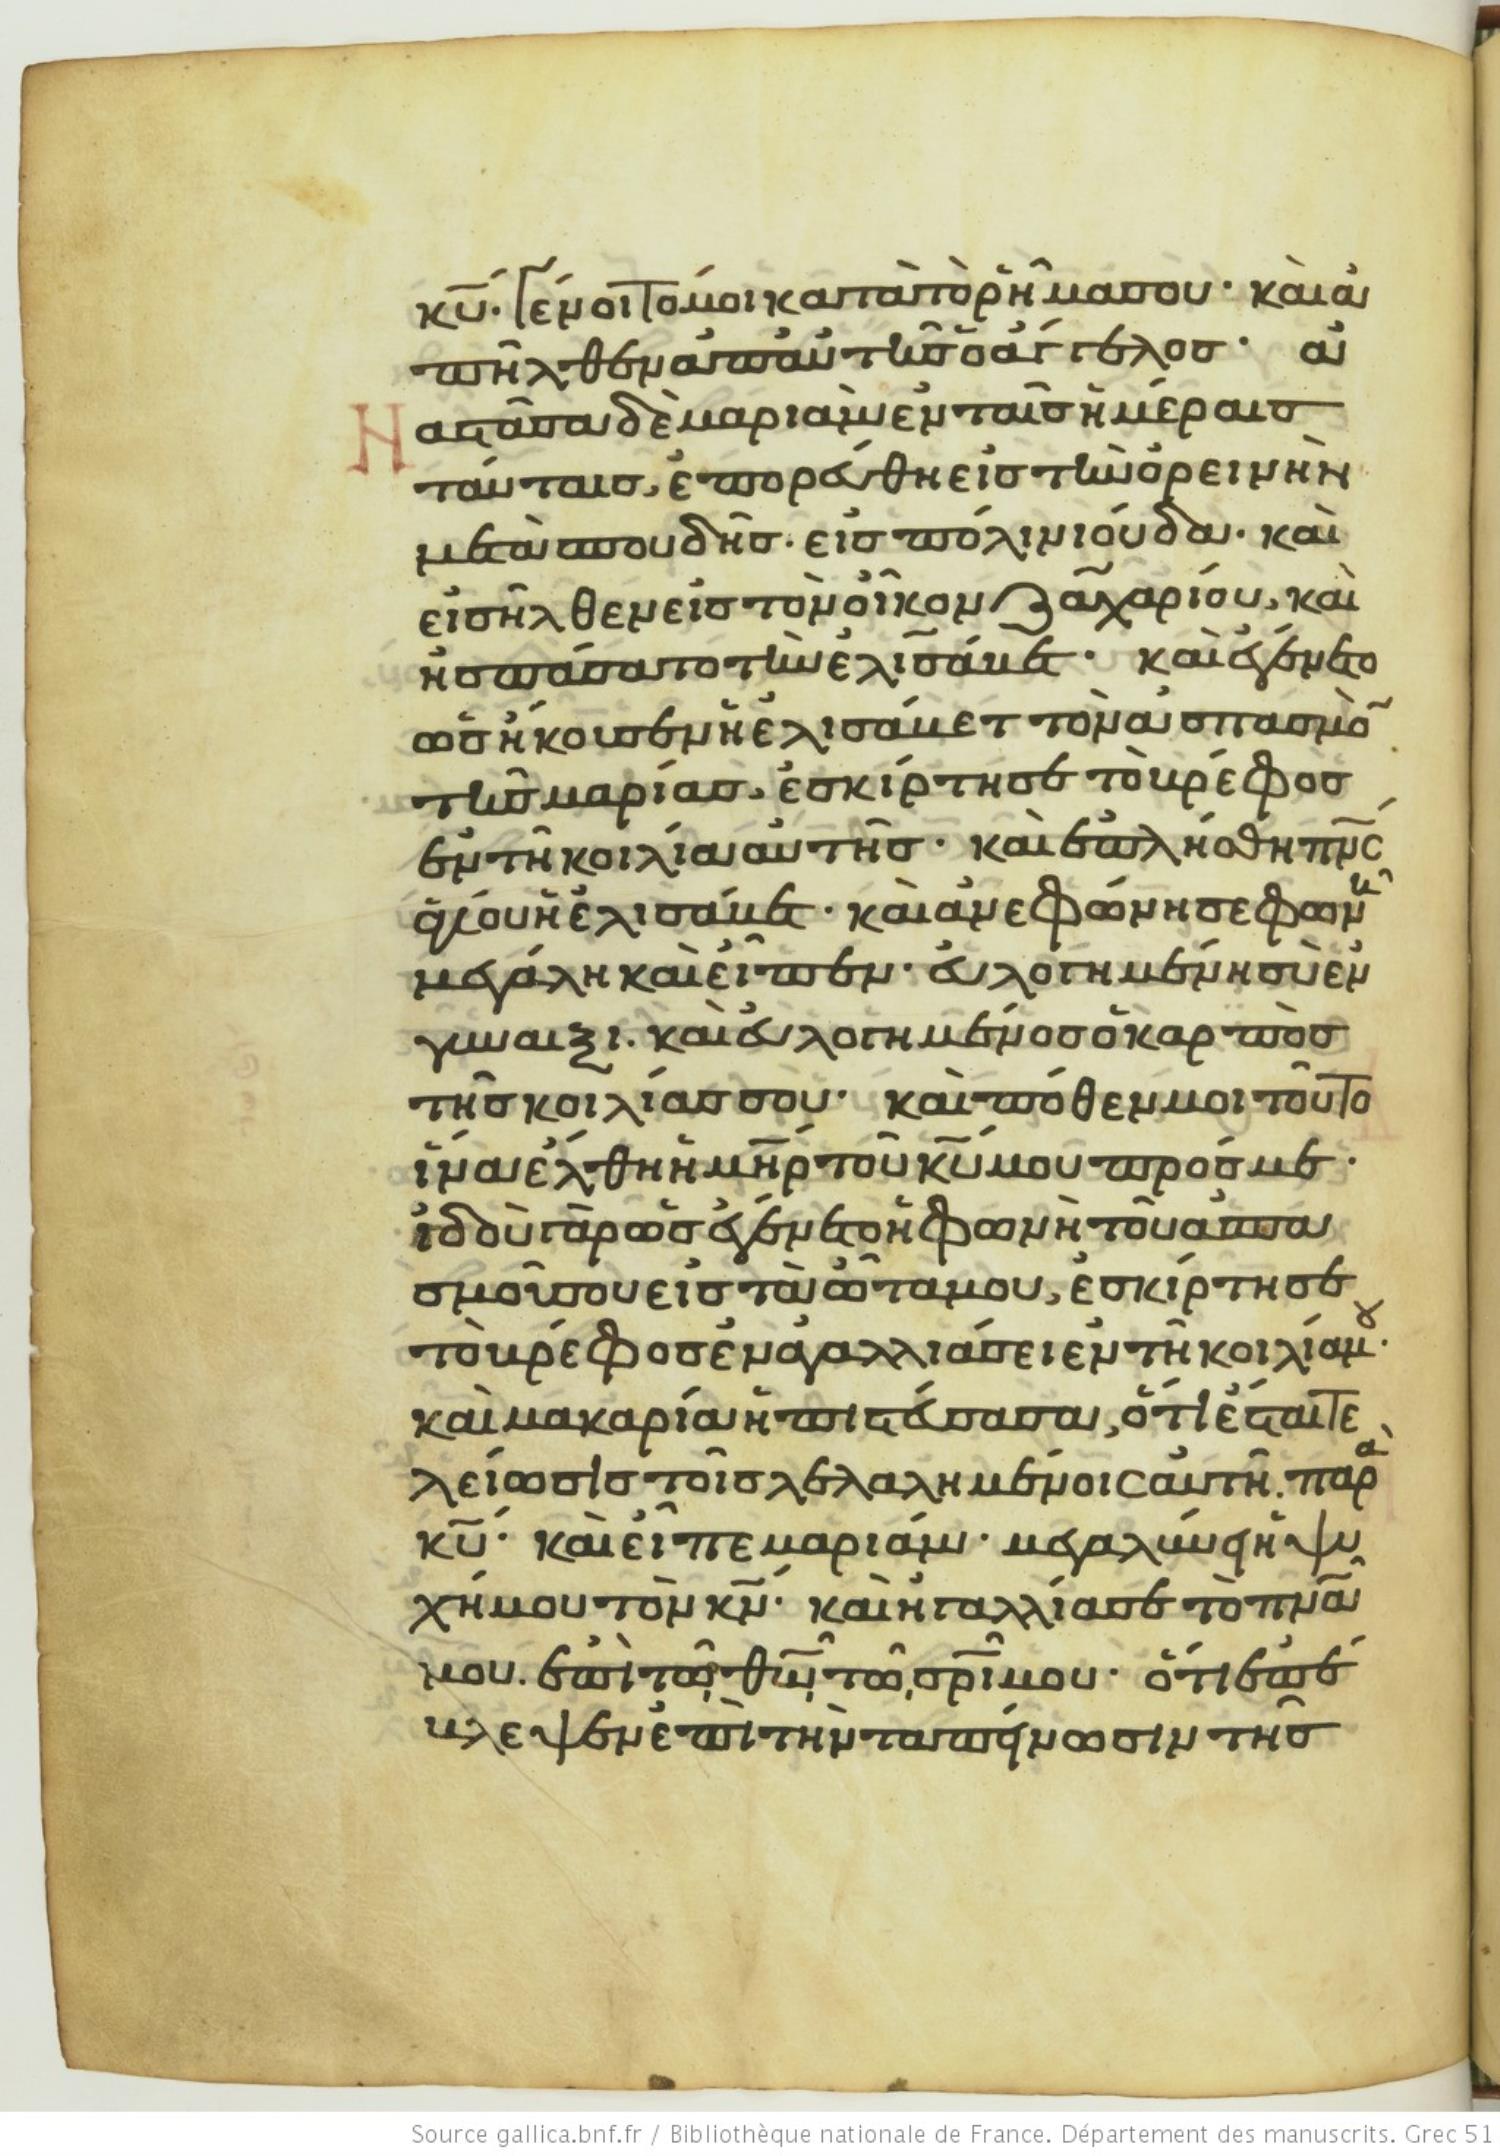 κ̅υ̅· γένοιτό μοι κατὰ τὸ ῥῆμά σου· καὶ ἀ
πῆλθεν ἀπ' αὐτῆς ὁ ἄγγελος· ἀ
Ηναστᾶσα δὲ μαριὰμ ἐν ταῖς ἡμέραις
ταύταις, ἐπορεύθη εἰς τὴν ὀρεινὴν
μετὰ σπουδῆς· εἰς πόλιν ἰούδα· καὶ
εἰσῆλθεν εἰς τὸν οἶκον ζαχαρίου, καὶ
ἠσπάσατο τὴν ἐλισάβετ· καὶ ἐγένετο
ὡς ἤκουσεν ἡ ἐλισάβετ τὸν ἀσπασμὸ̅
τῆς μαρίας, ἐσκίρτησε τὸ βρέφος
ἐν τῇ κοιλία αὐτῆς· καὶ ἐπλήσθη π̅ν̅ς̅
ἁγίου ἡ ἐλισάβετ· καὶ ἀνεφώνησε φωνῆ
μεγάλη καὶ εἶπεν· εὐλογημένη σὺ ἐν
γυναιξί· καὶ εὐλογημένος ὁ καρπὸς
τῆς κοιλίας σου· καὶ πόθεν μοι τοῦτο
ἵνα ἔλθη ἡ μ̅η̅ρ̅ τοῦ κ̅υ̅ μου πρός με·
ἰδοὺ γὰρ ὡς ἐγένετο ἡ φωνὴ τοῦ ἀσπα
σμοῦ σου εἰς τὰ ὦτα μου, ἐσκίρτησε
τὸ βρέφος ἐν ἀγαλλιάσει ἐν τῇ κοιλία μου·
καὶ μακαρία ἡ πιστεύσασα, ὅτι ἔσται τε
λείωσις τοῖς λελαλημένοις αὐτῆ παρὰ
κ̅υ̅· καὶ εἶπε μαριάμ· μεγαλύνει ἡ ψυ
χή μου τὸν κ̅ν̅· καὶ ἠγαλλίασε τὸ π̅ν̅α̅
μου· ἐπὶ τῷ θ̅ω̅ τῷ σ̅ρ̅ι̅ μου· ὅτι ἐπέ
βλεψεν ἐπὶ τὴν ταπείνωσιν τῆς
Source gallica.bnf.fr / Bibliothèque nationale de France. Département des manuscrits. Grec 51